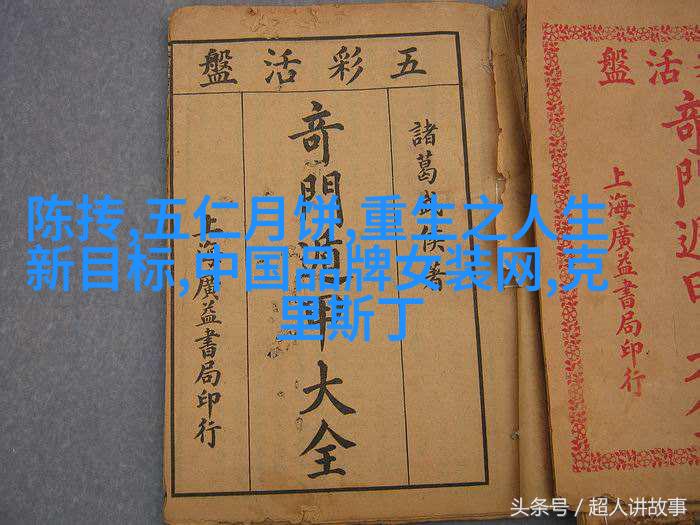 五彩活盤
諸葛武侯著
奇門遁甲大全
上海廣益書局印行
活盤
奇門遁
上海廣益書局印行
陈抟,五仁月饼,重生之人生
新目标,中国品牌女装网,克
里斯丁
头条号 / 超人讲故事